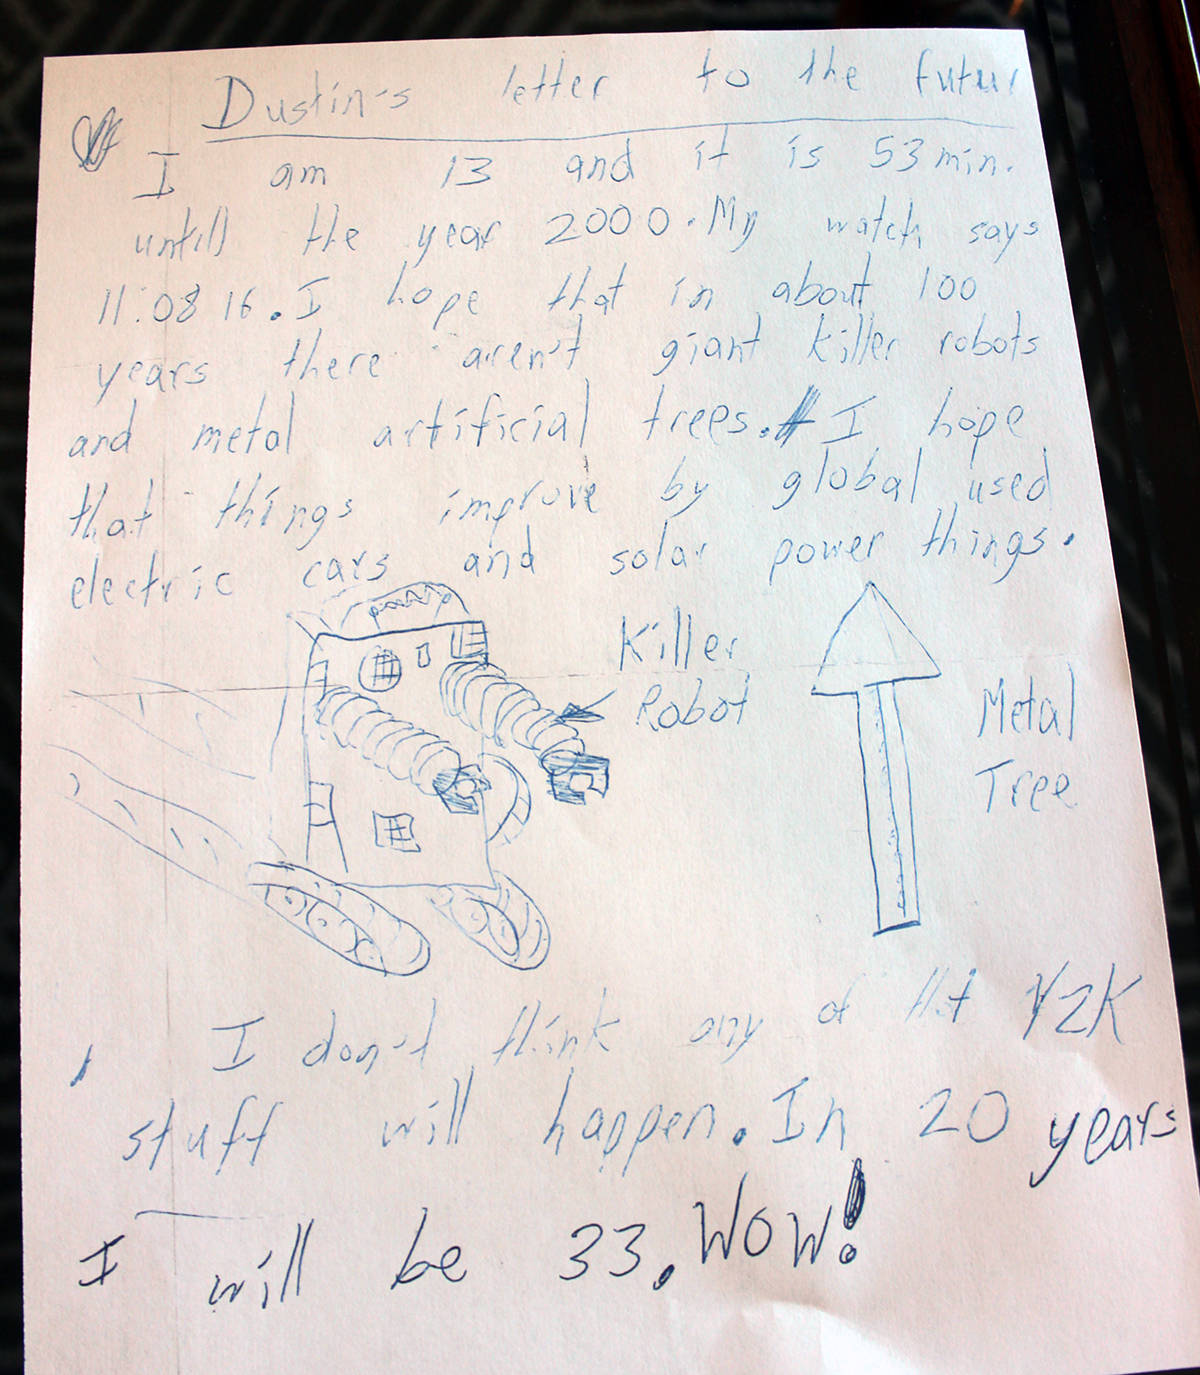 Dustin's letter to the futur
I am 13 and it is 53 min.
untill the year 2000. My watch says
11:08 16. I hope that in about 100
years there aren't giant killer robots
and metal artificial trees. I hope
that things improve by global used
electric cars and solar power things.
Killer
Robot
Metal
Tree
I don't think any of tht Y2K
stuff will happen. In 20 years
I will be 33. WOW!